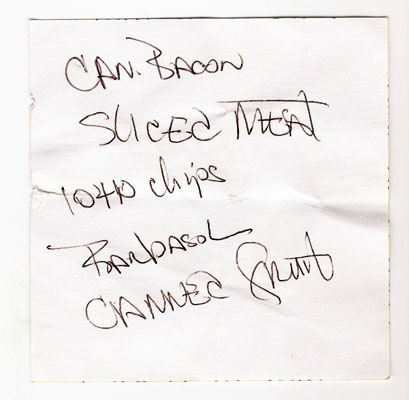 CAN. BACON
SLICED MEAT
chips
BARBASOL
CANNED fruit